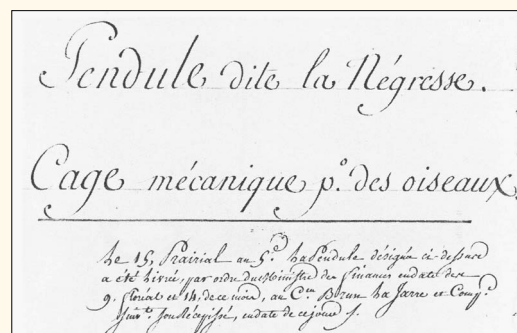 Pendule dite la Négresse.
Cage mécanique p.º des oiseaux
Le 15, Prairial an 5.e La Pendule désignée ci-dessus
a été livrée, par ordre du Ministre des finances en date des
9, floréal et 14, de ce mois, au C.en Bizun La Jarre et Comp.e
suiv.t son Récépissé, en date de ce jour